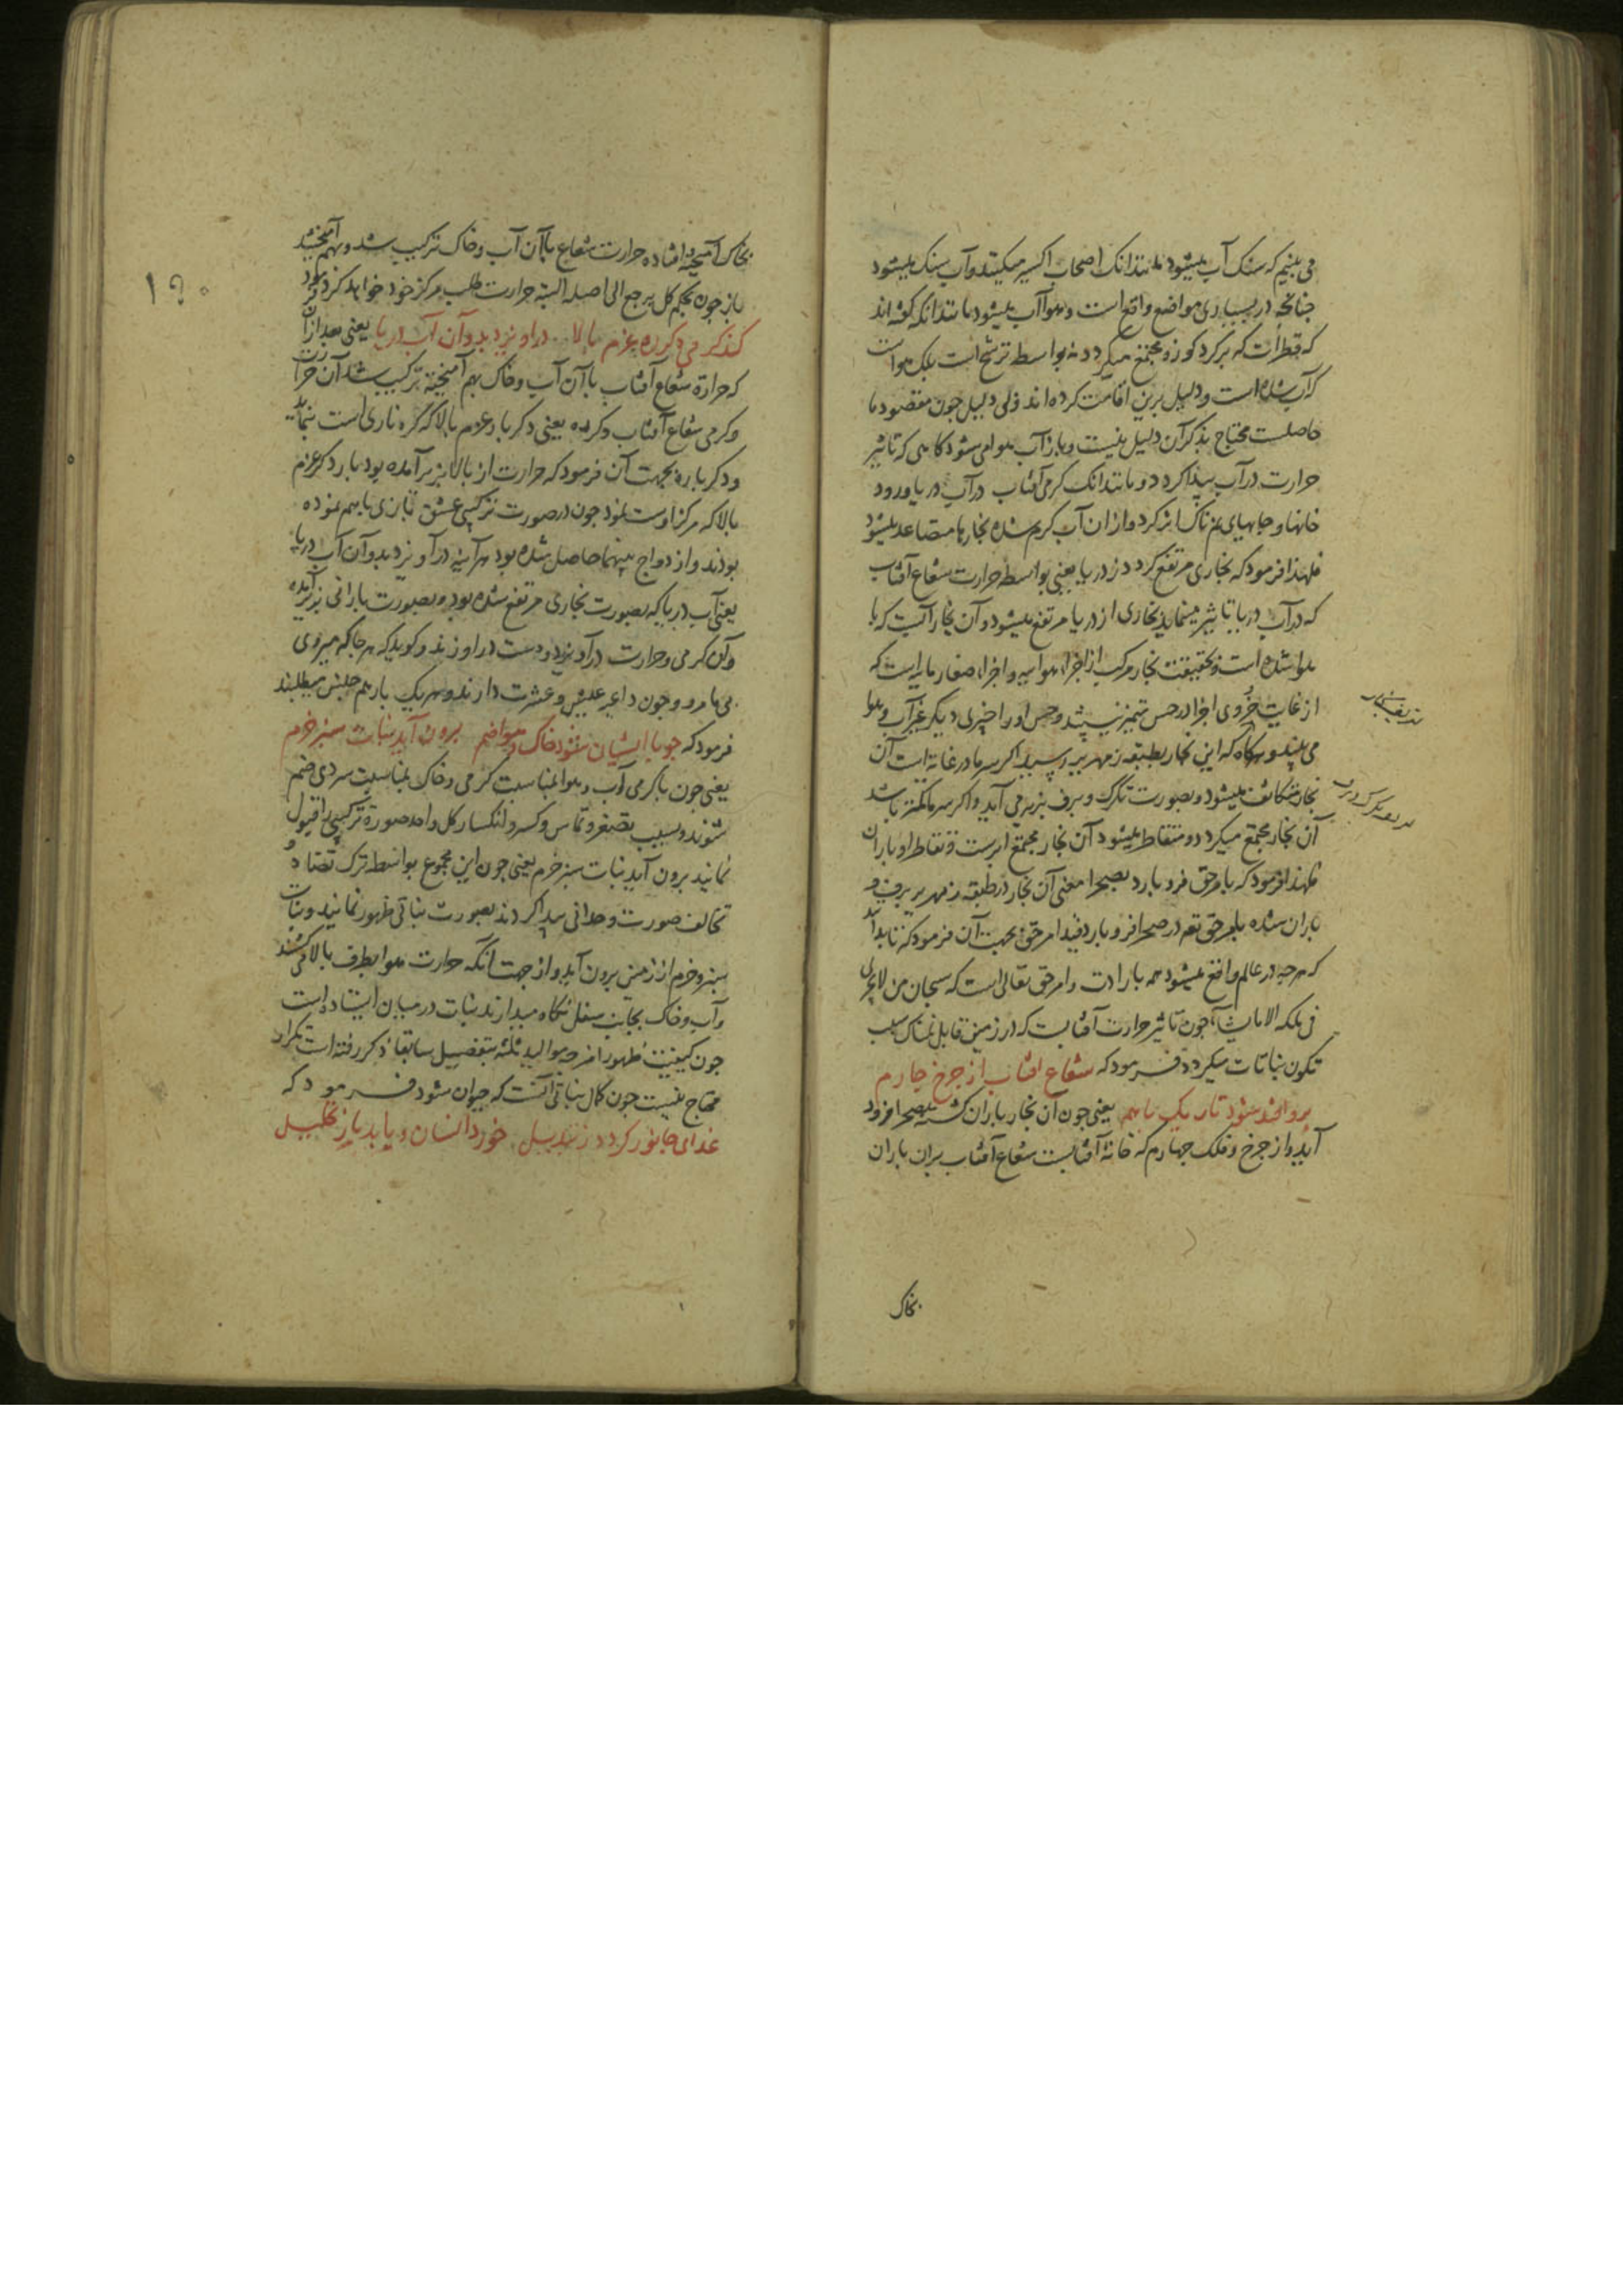 می بینیم که سنک آب میشود مانندانک اصحاب اکسیر میکنند و آب سنک میشود
جنانجه در بسیاری مواضع واقع است و هوا آب میشود مانندانکه کفته‌اند
که قطرات که بر کرد کوزه مجتمع میکردد نه بواسطه ترشح است بلک هواست
که آب شده است و دلیل برین اقامت کرده‌اند ولی دلیل جون مقصود ما
حاصلست محتاج بذکر آن دلیل نیست و باز آب هوا می شود کاهی که تاثیر
حرارت در آب پیدا کردد و مانندانک کرمی آفتاب در آب دریا و رود
خانها و جایهای نم ناک اثر کرد و از ان آب کرم شده بخارها متصاعد میشود
فلهذا فرمود که بخاری مرتفع کردد ز دریا یعنی بواسطه حرارت شعاع آفتاب
که در آب دریا تاثیر مینماید بخاری از دریا مرتفع میشود و آن بخار آبیست که با
هوا شده است و حقیقت بخار مرکب از اجزاء هواییه و اجزاء صغار مائیه است که
از غایت خُردی اجزا در حس تمیز نیستند و حس او را چیزی دیکر غیر آب و هوا
می بیند و هرکاه که این بخار بطبقه زمهریر رسید اکر سرما در غایة است آن
بخار متکاثف میشود و بصورت تکرک و برف بزیر می آید و اکر سرما کمتر باشد
آن بخار مجتمع میکردد و متقاطر میشود آن بخار مجتمع ابرست و تقاطر او باران
فلهذا فرمود که بامر حق فرو بارد بصحرا معنی آن بخار در طبقه زمهریر برف و
باران شده بامر حق تعـ در صحرا فرو بارد قید امر حق بجهت آن فرمود که تا بداند
که هرچه در عالم واقع میشود همه بارادت و امر حق تعالی است که سبحان من لا یجری
فی ملکه الا ما یشاء جون تاثیر حرارت آفتابست که در زمین قابل نمناک سبب
تکون نباتات میکردد فرمود که شعاع آفتاب از جرخ جارم
برو افتد شود تاریک باهم یعنی جون آن بخار باران کشته بصحرا فرود
آید و از جرخ و فلک جهارم که خانهٔ آفتابست شعاع آفتاب بران باران
بخاک
۱۹۰
بخاک آمیخته افتاده حرارت شعاع باآن آب و خاک ترکیب شد و بهم آمیختند
باز جون بحکم کل یرجع الی اصله البته حرارت طلب مرکز خود خواهد کرد فرمود
کند کرمی دکر ره عزم بالا در آویزد بدو آن آب دریا یعنی بعد از آن
که حرارة شعاع آفتاب باآن آب و خاک بهم آمیخته ترکیب شد آن حرارت
و کرمی شعاع آفتاب دکر ره یعنی دکر بار عزم بالا که کره ناری است بنماید
و دکر باره بجهت آن فرمود که حرارت از بالا بزیر آمده بود بار دکر عزم
بالا که مرکز اوست نمود جون در صورت ترکیبی عشق بازی باهم نموده
بودند و ازدواج بینهما حاصل شده بود هرآینه درآویزد بدو آن آب دریا
یعنی آب دریا که بصورت بخاری مرتفع شده بود و بصورت بارانی بزیر آمده
و آن کرمی و حرارت درآویزد و دست در او زند و کوید که هر جا که میروی
بی ما مرو و جون داعیه عیش و عشرت دارند و هر یک باز هم جنس میطلبند
فرمود که جو با ایشان شود خاک و هوا ضم برون آید نبات سبز خرم
یعنی جون باکرمی آب و هوا بمناسبت کرمی و خاک بمناسبت سردی ضم
شوند و بسبب تصغر و تماس و کسر و انکسار کل واحد صورة ترکیبی را قبول
نمایند برون آید نبات سبز خرم یعنی جون این مجموع بواسطه ترک تضاد و
تخالف صورت وحدانی پیدا کردند بصورت نباتی ظهور نمایند و نبات
سبز و خرم از زمین برون آید و از جهت آنکه حرارت هوا بطرف بالا می کشند
و آب و خاک بجانب سفل نکاه میدارند نبات در میان ایستاده است
جون کیفیت ظهور امزجه موالید ثلثه بتفصیل سابقاً ذکر رفته است تکرار
محتاج نیست جون کمال نباتی آنست که حیوان شود فرمود که
غذای جانور کردد ز تبدیل خورد انسان و یابد باز تحلیل